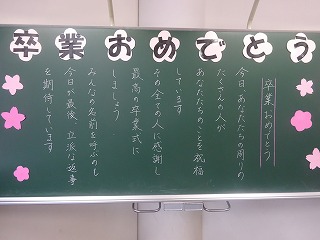 卒業おめでとう
卒業おめでとう
今日、あなたたちの周りの
たくさんの人が
あなたたちのことを祝福
しています
その全ての人に感謝し
最高の卒業式に
しましょう
みんなの名前を呼ぶのも
今日が最後 立派な返事
を期待しています